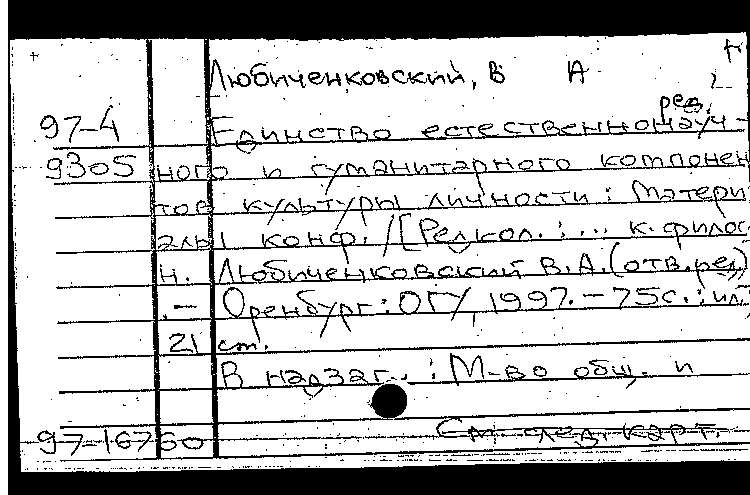 Любиченковский, В А
ред.
97-4 Единство естественнонауч-
9305 ного и гуманитарного компонен
тов культуры личности: Матери
алы конф. /[Редкол.: ... к. филос
н. Любиченковский В.А. (отв. ред)
.- Оренбург: ОГУ, 1997. - 75с.: ил;
21 см.
В надзаг.: М-во общ. и
97-16760 См. след. карт.